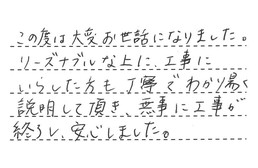 この度は大変お世話になりました。
リーズナブルな上に、工事に
いらした方も丁寧でわかり易く
説明して頂き、無事に工事が
終了し、安心しました。